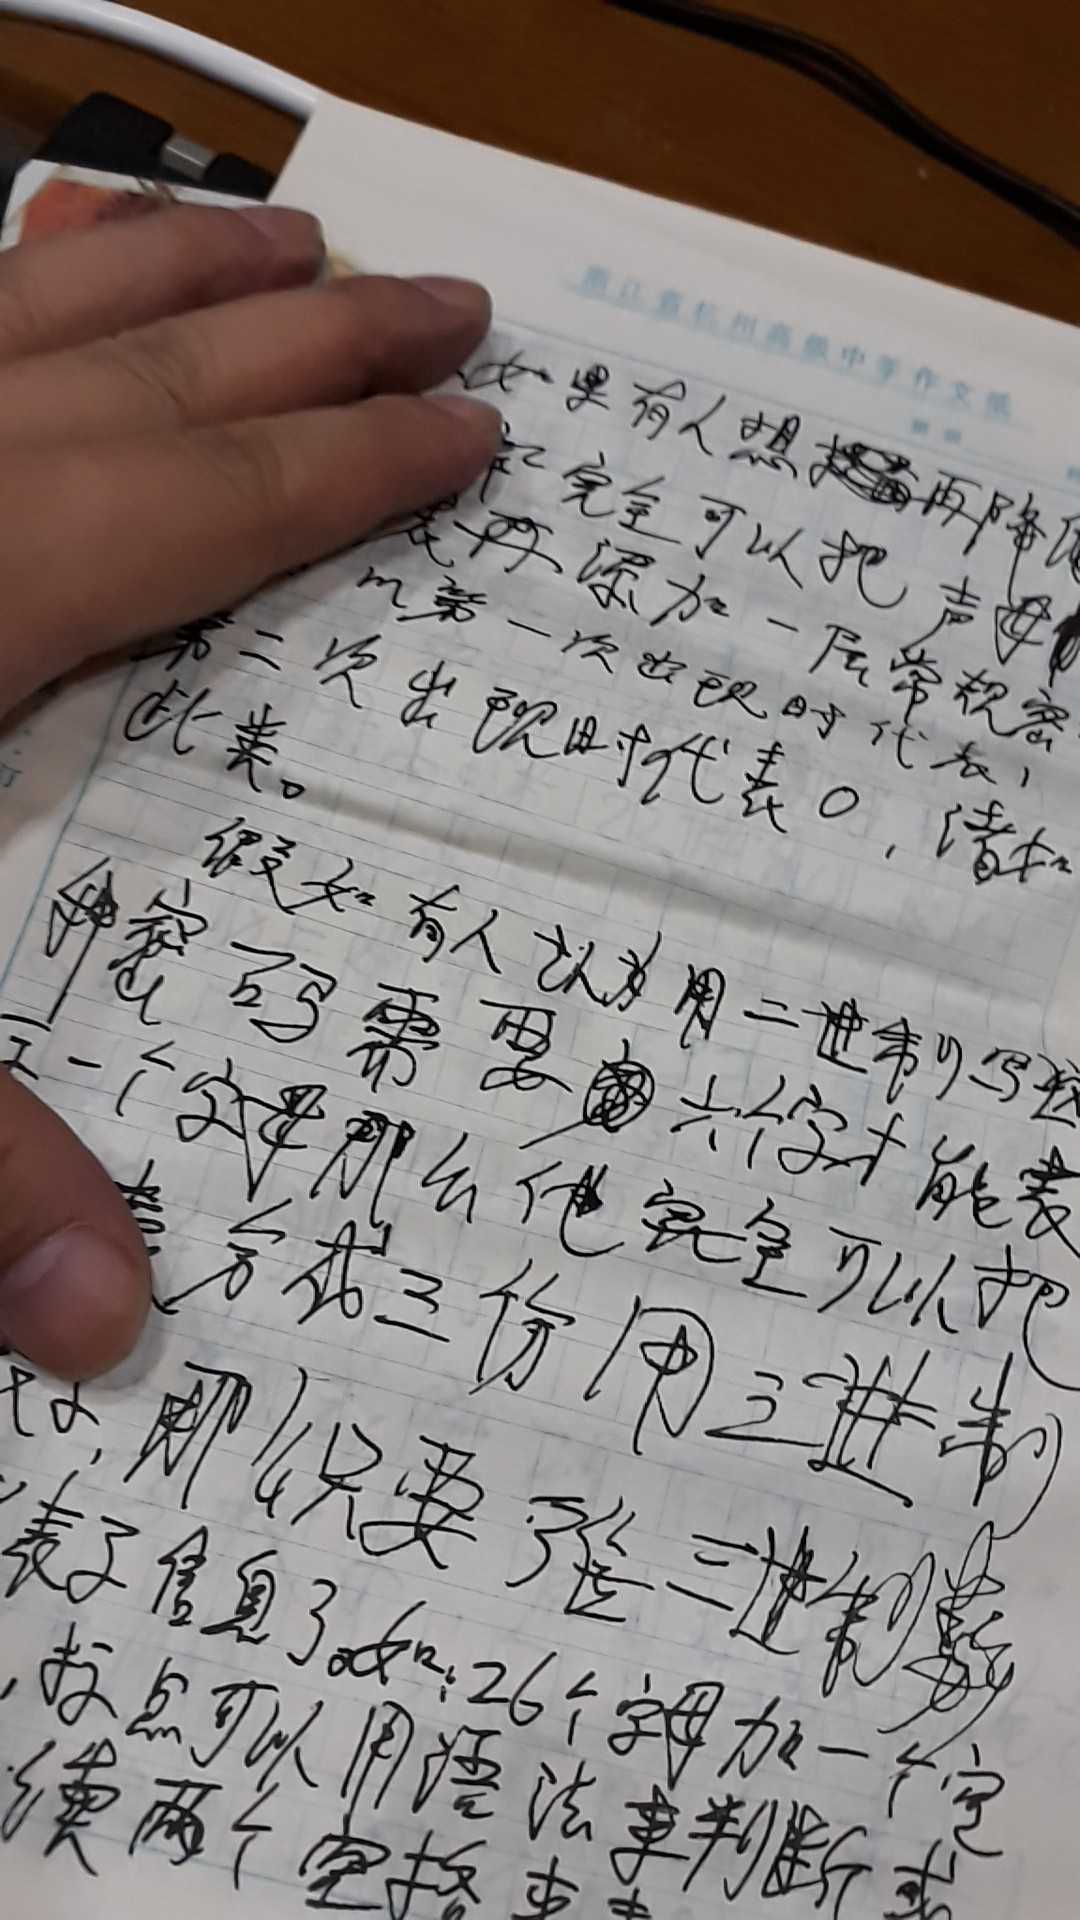 浙江省杭州高级中学作文纸
如果有人想再降低
完全可以把声母
表再深加一层常规密
以第一次出现时代表1
第二次出现时代表0，诸如
此类。
假如有人认为用二进制写这
种密码需要六个字才能表
示一个字母那么他完全可以把
表分成三份用三进制
那么只要了三进制
表了信息了。如：26个字母加一个空
，按点可以用语法来判断或
续两个空格来表